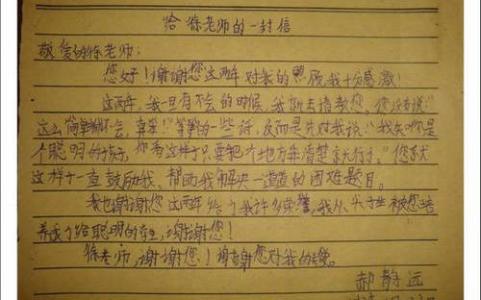 给徐老师的一封信
敬爱的徐老师：
您好！谢谢您这两年对我的照顾，我十分感激！
这两年，我一旦有不会的时候，我都去请教您，您没有说“
这么简单都不会，真笨！”等等的一些话，反而是片对我说：“我知你是
个聪明的孩子，你看这样子只要把个地方弄清楚就行了。”您就
这样子一直鼓励我、帮助我解决一道道的困难题目。
我也谢谢您这两年给了我许多荣誉，我从
养成了个聪明的，谢谢您！
徐老师，谢谢您！谢谢您对我的
郝静远